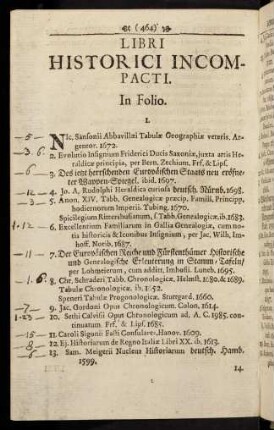 (464)
LIBRI
HISTORICI INCOM-
PACTI.
In Folio.
I.
—5— Nic. Sansonii Abbavillæi Tabulæ Geographiæ veteris, Ar-
gentor. 1672.
—3.6. 2. Evolutio Insignium Friderici Ducis Saxoniæ, juxta artis He-
raldicæ principia, per Bern. Zechium, Frf. & Lips.
—6— 3. Des jetzt herrschenden Europäischen Staats neu eröfne-
ter Wappen-Spiegel. ibid. 1697.
—12— 4. Jo. A. Rudolphi Heraldica curiosa deutsch. Nürnb. 1698.
—3— 5. Anon. XIV. Tabb. Genealogicæ præcip. Famill. Principp.
hodiernorum Imperii. Tubing. 1670.
Spicilegium Rittershusianum, s. Tabb. Genealogicæ, ib. 1683.
1.12— 6. Excellentium Familiarum in Gallia Genealogiæ, cum no-
titia historica & Iconibus Insignium, per Jac. Wilh. Im-
hoff. Norib. 1687.
—11— 7. Der Europäischen Reiche und Fürstenthümer Historische
und Genealogische Erleuterung in Stamm-Tafeln/
per Lohmeierum, cum addit. Imhofii. Luneb. 1695.
1.6 8. Chr. Schraderi Tabb. Chronologicæ. Helmst. 1680. & 1689.
Tabulæ Chronologicæ. ib. 1652.
Speneri Tabulæ Progonologicæ. Stuttgard. 1660.
—7— 9. Jac. Gordoni Opus Chronologicum. Colon. 1614.
1.23— 10. Sethi Calvisii Opus Chronologicum ad. A. C. 1985. con-
tinuatum. Frf. & Lips. 1685.
—15— 11. Caroli Sigonii Fasti Consulares, Hanov. 1609.
—8— 12. Ej. Historiarum de Regno Italiæ Libri XX. ib. 1613.
—6— 13. Sam. Meigerii Nucleus Historiarum deutsch. Hamb.
1599.
14.